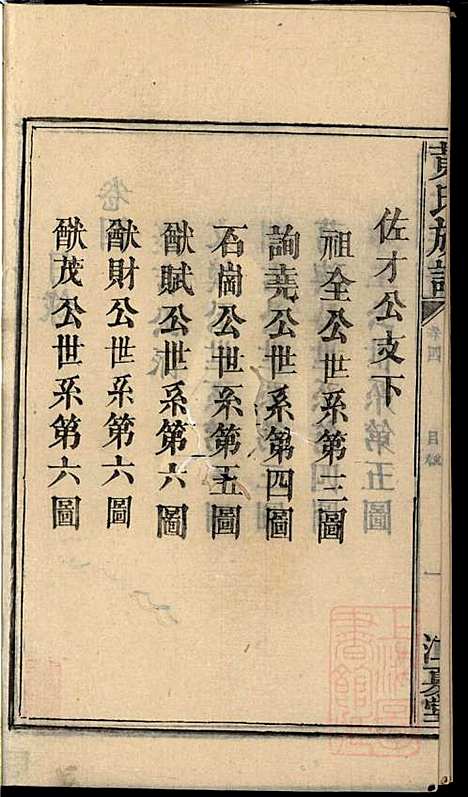 佐才公支下
祖全公世系第三圖
詢堯公世系第四圖
石崗公世系第五圖
猷賦公世系第六圖
猷財公世系第六圖
猷茂公世系第六圖
黃氏族譜
卷四
目錄
一
江夏堂